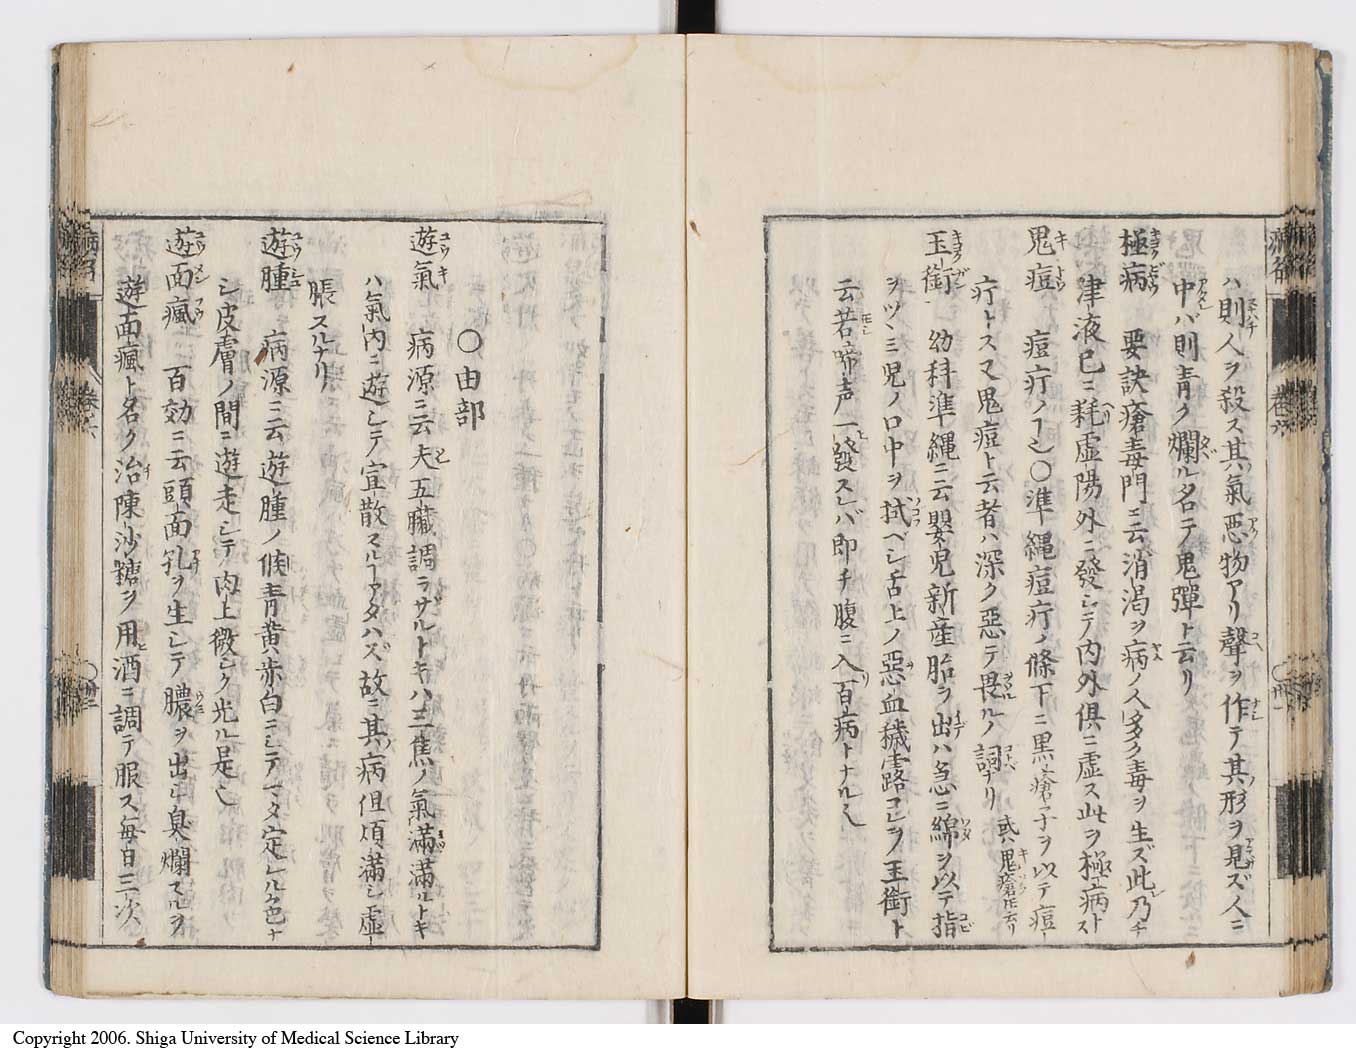 ハ則人ヲ殺ス其氣惡物アリ聲ヲ作テ其形ヲ見ズ人ニ
中バ則青ク爛ル名テ鬼彈ト云リ
極病 要訣瘡毒門ニ云消渇ヲ病ノ人多ク毒ヲ生ズ此乃チ
津液已ニ耗虚陽外ニ發シテ内外倶ニ虚ス此ヲ極病トス
鬼痘 痘疔ノヿ也○準縄痘疔ノ條下ニ黒瘡子ヲ以テ痘
疔トス又鬼痘ト云者ハ深ク惡テ畏ルノ詞ナリ 或鬼瘡ト云リ
玉銜 幼科準縄ニ云嬰児新産胎ヲ出ハ急ニ綿ヲ以テ指
ヲツヽミ児ノ口中ヲ拭ベシ舌上ノ惡血穢露コレヲ玉銜ト
云若啼声一發スレバ即チ腹ニ入百病トナル也
○由部
遊氣 病源ニ云夫五臓調ラサルトキハ三焦ノ氣滿滿ルトキ
ハ氣内ニ遊シテ宣散スルヿアタハズ故ニ其病但煩滿シ虚
脹スルナリ
遊腫 病源ニ云遊腫ノ候青黄赤白ニシテマタ定レル色ナ
シ皮膚ノ間ニ遊走シテ肉上微シク光ル是也
遊面瘋 百効ニ云頭面乳ヲ生シテ膿ヲ出シ臭爛スルヲ
遊面瘋ト名ク治陳沙糖ヲ用酒ニ調テ服ス毎日三次
Copyright 2006. Shiga University of Medical Science Library